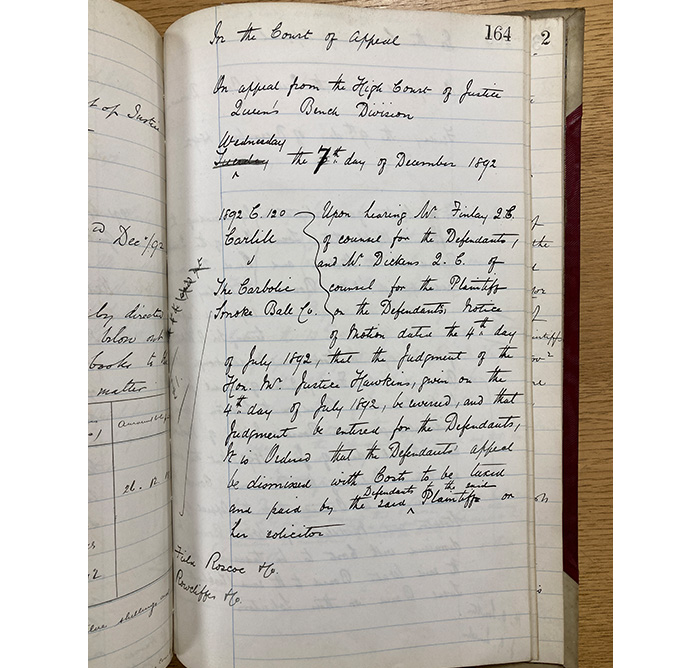 In the Court of Appeal
164
On appeal from the High Court of Justice
Queen's Bench Division
Wednesday
Tuesday the 7th day of December 1892
1892 C. 120
Carlill
v
The Carbolic
Smoke Ball Co.
Upon hearing Mr. Finlay Q.C.
of counsel for the Defendants,
and Mr. Dickens Q.C. of
counsel for the Plaintiff
on the Defendants Notice
of Motion dated the 4th day
of July 1892, that the Judgment of the
Hon. Mr. Justice Hawkins, given on the
4th day of July 1892, be reversed, and that
Judgment be entered for the Defendants,
It is Ordered that the Defendants appeal
be dismissed with Costs to be taxed
and paid by the said Defendants to the said Plaintiff or
her solicitor
Field Roscoe & Co.
Rowcliffes & Co.
2
t of Justice
Dec. /92
by direction
below
books to
matter
26. 12.
the